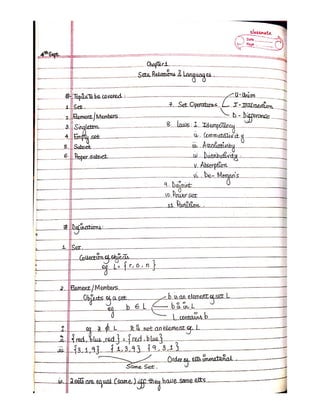 classmate
Date
Page
4th Sept.
Chapter 1
Sets, Relations & Languages.
# Topics to be covered.
1. Set.
2. Element/Members
3. Singleton
4. Empty set
5. Subset
6. Proper subset.
7. Set Operations
U-Union
I-Intersection
D-Difference
8. Laws i. Idempotency
ii. Commutativity
iii. Associativity
iv. Distributivity
v. Absorption
vi. De-Morgan's
9. Disjoint
10. Power set
11. Partition.
# Definitions:
1. Set.
Collection of objects
eg. L = {r, o, n}
2. Element/Members.
Objects of a set.
eg. b ∈ L
b is an element of set L
b is in L
L contains b
i. eg. z ∉ L It is not an element of L.
ii. {red, blue, red} = {red, blue}
iii. {3,1,9} {1,3,9} {9,3,1}
Same Set.
Order of elts immaterial.
iv. 2 sets are equal (same) iff they have same elts.